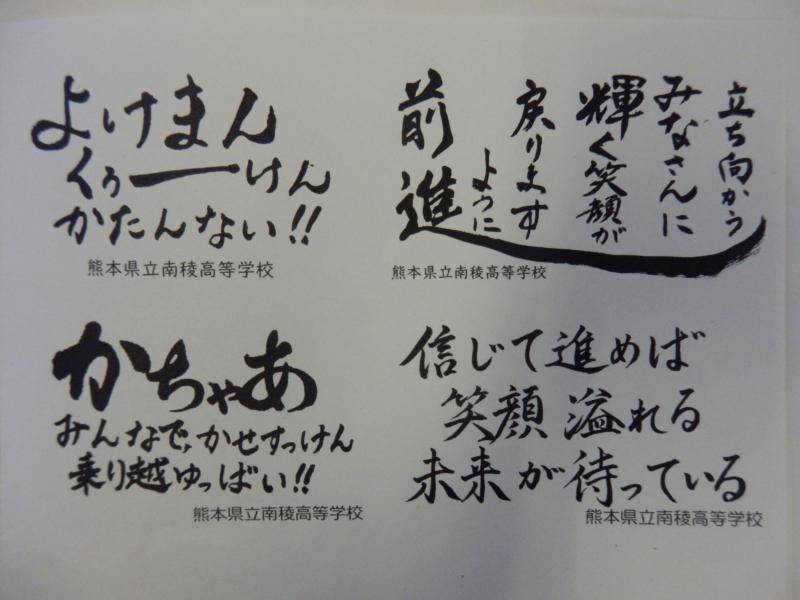 よけまん
くぅーーけん
かたんない!!
熊本県立南稜高等学校
立ち向かう
みなさんに
輝く笑顔が
戻ります
ように
前進
熊本県立南稜高等学校
かちゃあ
みんなで、かせすっけん
乗り越ゆっばい!!
熊本県立南稜高等学校
信じて進めば
笑顔溢れる
未来が待っている
熊本県立南稜高等学校